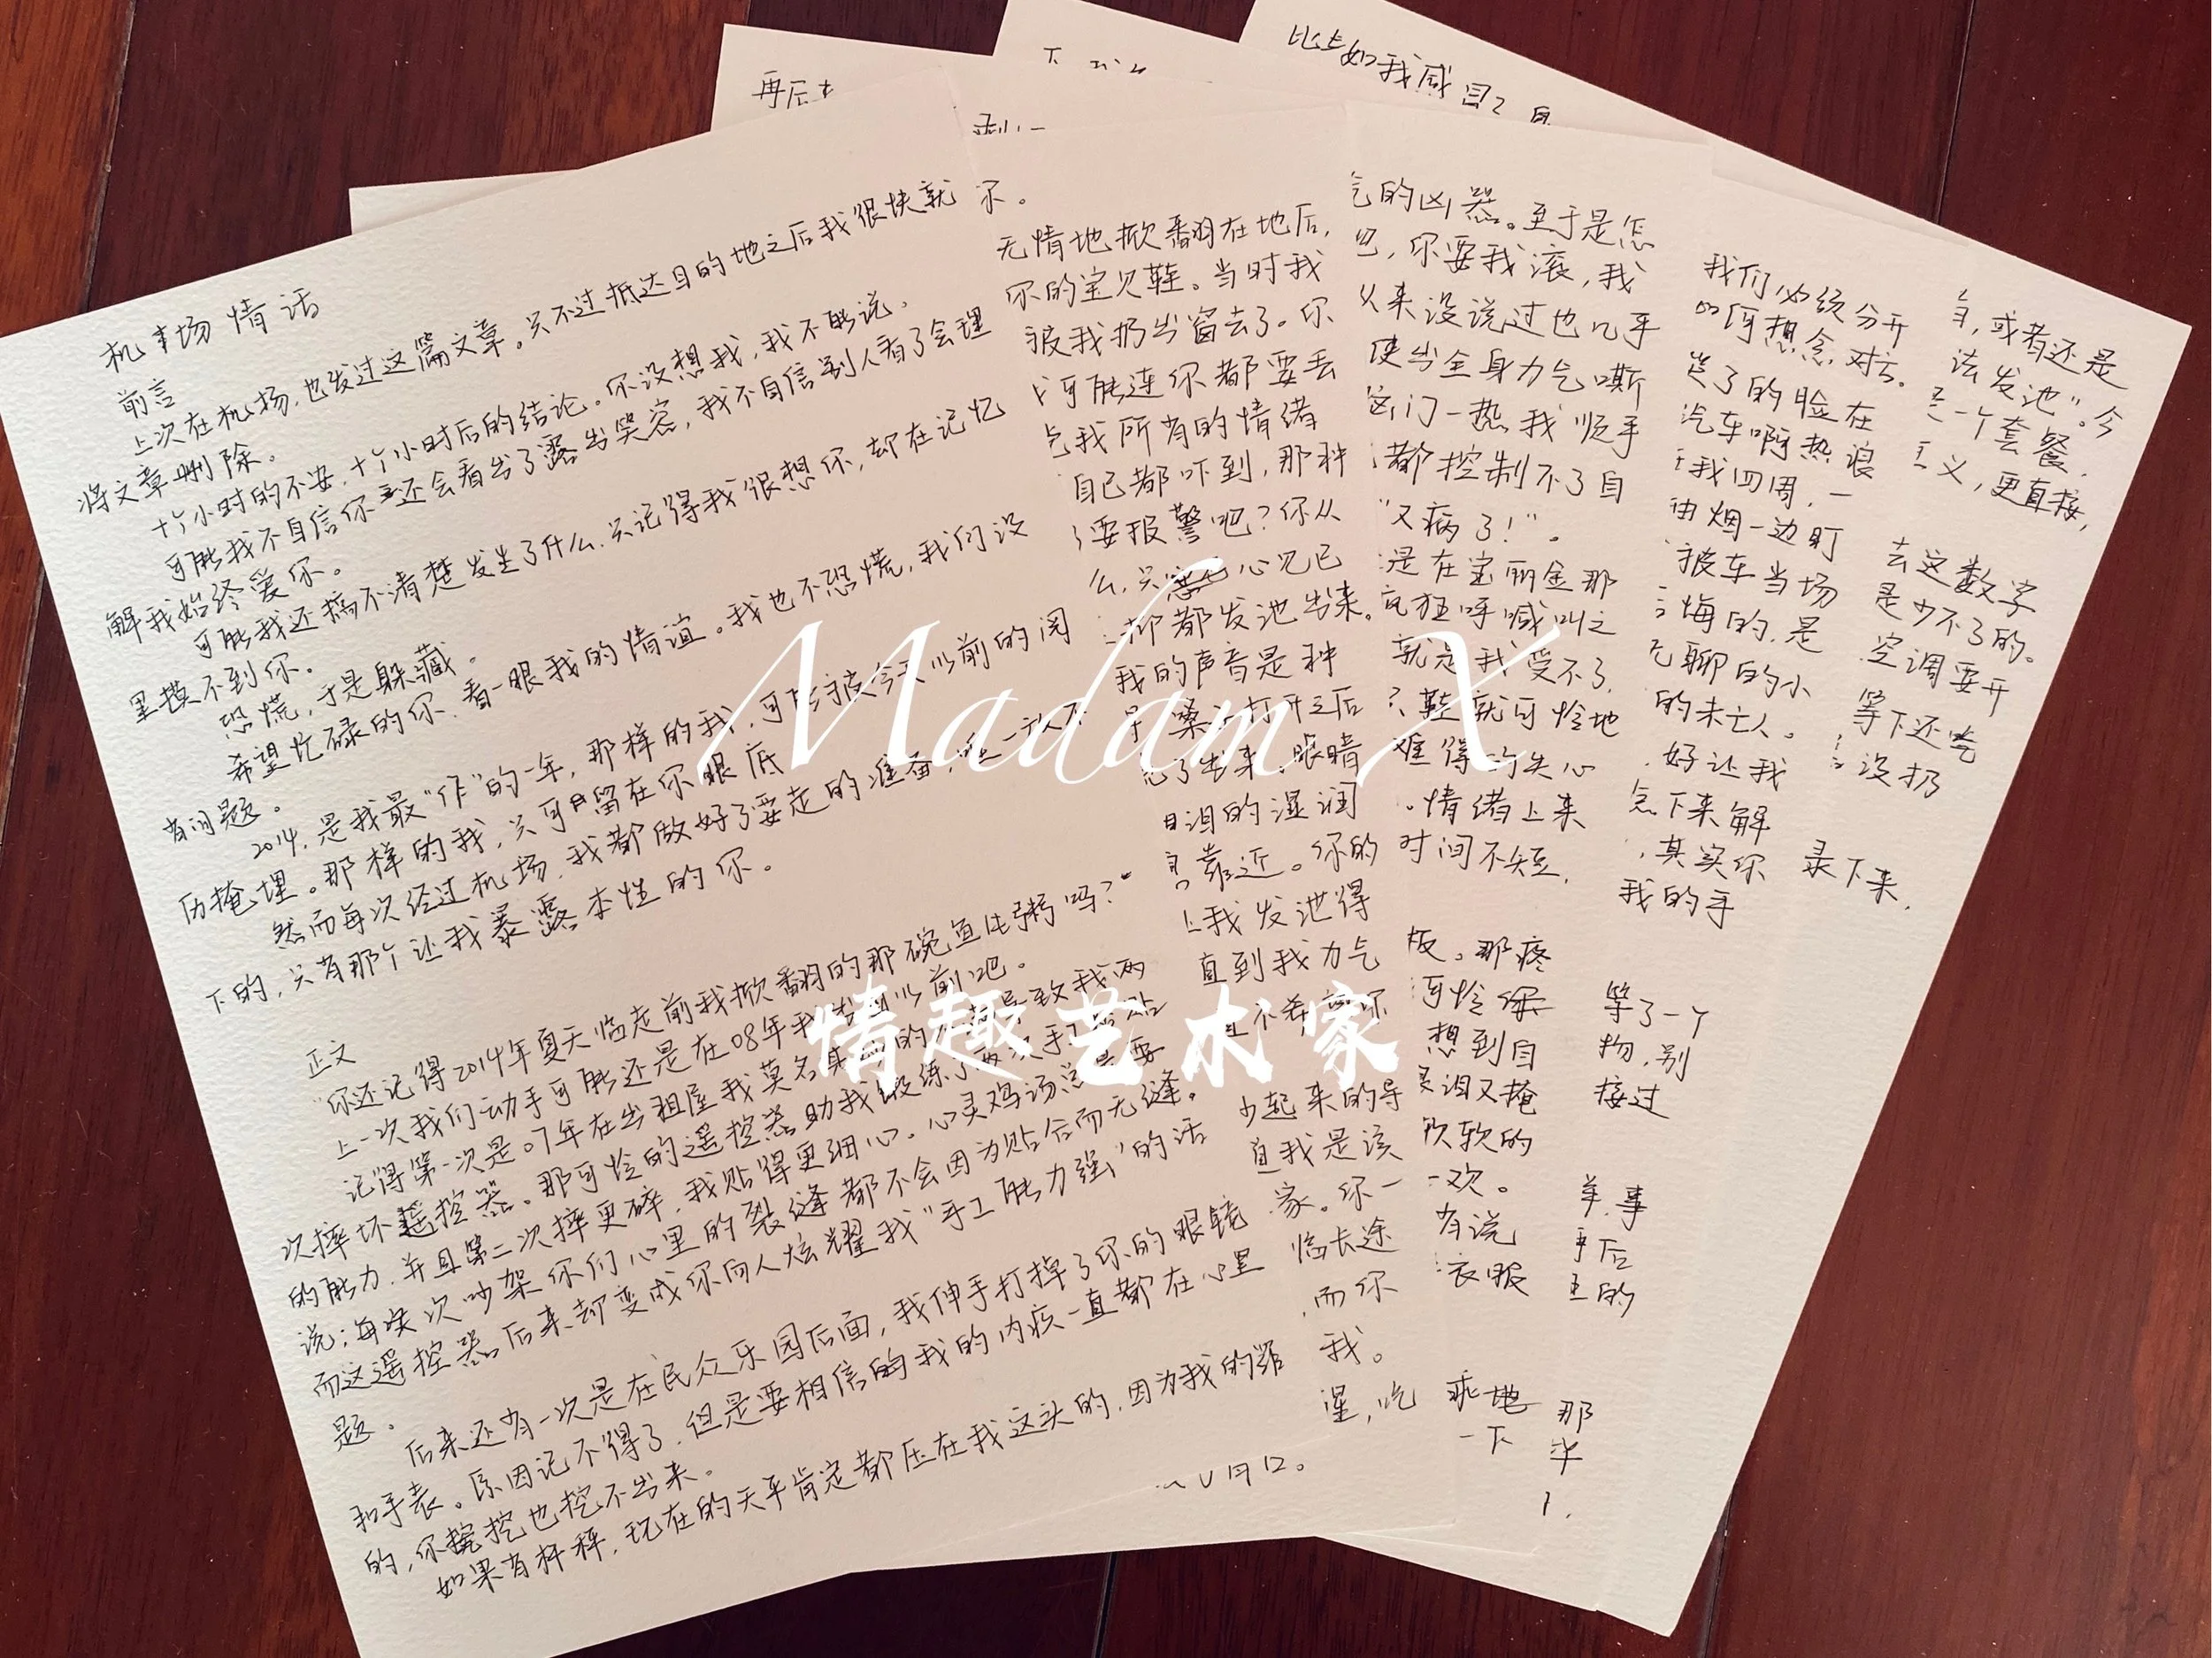 机场情话
前言
上次在机场,也发过这篇文章。只不过抵达目的地之后我很快就
将文章删除。
十个小时的不安,十个小时后的结论。你没想我,我不能说。
可能我不自信你还会看出了露出笑容,我不自信别人看了会理
解我始终爱你。
可能我还搞不清楚发生了什么,只记得我很想你,却在记忆
里摸不到你。
恐慌,于是躲藏。
希望忙碌的你,看一眼我的情谊。我也不恐慌,我们没
有问题。
2014,是我最“作”的一年,那样的我,可能被今天以前的阅
历掩埋。那样的我,只可留在你眼底
然而每次经过机场,我都做好了要走的准备,唯一放不
下的,只有那个让我暴露本性的你。
正文
“你还记得2014年夏天临走前我掀翻的那碗鱼片粥吗?”
上一次我们动手可能还是在08年我出国以前吧。
记得第一次是07年在出租屋我莫名其妙的 导致我两
次摔坏遥控器。那可怜的遥控器助我锻练了两次手工 贴
的能力,并且第二次摔更碎,我贴得更细心。心灵鸡汤总是要
说:每次吵架你们心里的裂缝都不会因为贴合而无缝。
而这遥控器后来却变成你向人炫耀我“手工能力强”的话
题。
后来还有一次是在民众乐园后面,我伸手打掉了你的眼镜
和手表。原因记不得了,但是要相信的我的内疚一直都在心里
的,你挖也挖不出来。
如果有杆秤,现在的天平肯定都压在我这头的,因为我的罪
再后
你。
无情地掀翻在地后,
你的宝贝鞋。当时我
被我扔出窗去了。你
可能连你都要丢
我所有的情绪
自己都吓到,那种
要报警吧?你从
么,只 心思已
都发泄出来。
我的声音是种
嗓 打开之后
了出来,眼睛
泪的湿润
靠近。你的
我发泄得
直到我力气
不希望你
少起来的导
我是该
家。你一
临长途
,而你
我。
,吃
月12。
的凶器。至于是怎
吧,你要我滚,我
从来没说过也几乎
使出全身力气嘶
门一热我顺手
都控制不了自
“又病了!”。
是在宝丽金那
疯狂呼喊叫之
就是我受不了,
鞋就可怜地
难得的失心
。情绪上来
时间不短,
饭。那疼
可怜
想到自
泪又掩
软的
一次。
有说
衣服
乖地
一下
比如我感
我们必须分开
如何想念,对方。
了的脸在
汽车啊热浪
我四周,一
抽烟一边盯
被车当场
悔的,是
无聊的小
的未亡人。
,好让我
急下来解
,其实你
我的手
等了一个
物,别
接过
事
手后
的
那
,或者还是
法发泄”。今
一个套餐,
义,更直接,
去这数字
是少不了的。
空调要开
等下还吃
没扔
录下来,
Madam X
情趣艺术家